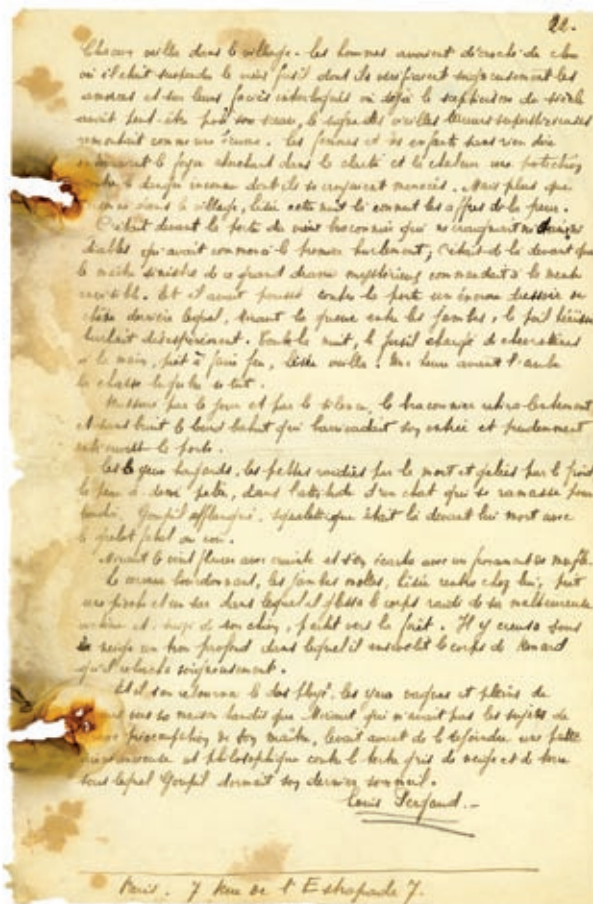 22.
Chacun veille dans le village. les hommes avaient décroché du clou
où il était suspendu le vieux fusil dont ils vérifiaient soigneusement les
amorces et sur leurs faciès interloqués où déjà le scepticisme du siècle
avait peut-être posé son sceau, le des vieilles terreurs superstitieuses
remontait comme une écume. les femmes et les enfants sans rien dire
le foyer cherchant dans la clarté et la chaleur une protection
le danger inconnu dont ils se croyaient menacés. Mais plus que
dans le village, Lisée cette nuit là connut les affres de la peur.
C'était devant la porte du vieux braconnier qui ne craignait ni
diables qu'avait commencé le premier hurlement; c'était de là devant que
le maître sinistre de ce grand drame mystérieux commandait à la meute
invisible. Et il avait poussé contre la porte un énorme dressoir
chêne derrière lequel, Miraut la queue entre les jambes, le poil hérissé
hurlait désespérément. Toute la nuit, le fusil chargé de chevrotines
à la main, prêt à faire feu, Lisée veilla. Une heure avant l'aube
la chasse se tut.
Rassuré par le jour et par le silence, le braconnier retira lentement
et sans bruit le bahut qui barricadait son entrée et prudemment
entrouvrit la porte.
les yeux hagards, les pattes raidies par la mort et gelées par le froid
la peau à demi pelée, dans l'attitude d'un chat qui se ramasse pour
bondir, Goupil efflanqué, squelettique était là devant lui mort avec
le grelot fatal au cou.
Miraut le vint flairer avec crainte et s'en écarta avec un froncement de mufle.
Le cerveau bourdonnant, les jambes molles, Lisée rentra chez lui, prit
une pioche et un sac dans lequel il glissa le corps raidi de sa malheureuse
victime et suivi de son chien, partit vers la forêt. Il y creusa sous
la neige un trou profond dans lequel il ensevelit le corps de Renard
qu'il reboucha soigneusement.
Et il s'en retourna le dos ployé, les yeux vagues et pleins de
vers sa maison tandis que Miraut qui n'avait pas les sujets de
préoccupation de son maître, levait avant de le rejoindre une patte
et philosophique contre le tertre gris de neige et de terre
sous lequel Goupil dormait son dernier sommeil.
Louis Pergaud.-
Paris. 7 Rue de l'Estrapade 7.